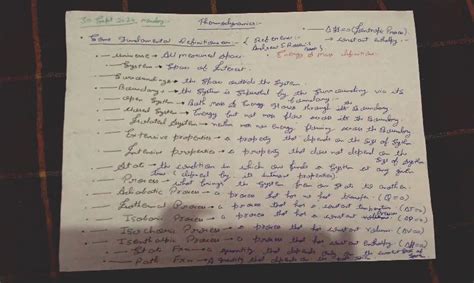 Thermodynamics :-
Some Fundamental Definitions :- { Reference :-
constant entropy
Energy & Mass
universe → All measured space
System → Space of Interest
Surroundings → the Space outside the System
Boundary → the System is Separated by the Surrounding via its boundary
Open System → Both mass & Energy flows through its Boundary
Closed System → Energy but not mass flows across its Boundary
Isolated System → neither mass nor energy flowing across the Boundary
Extensive properties → a property that depends on the Size of System
Intensive properties → a property that does not depend on the Size of System
State → the condition in which one finds a System at any given
time (defined by its intensive properties)
Process → what brings the System from one State to another
Adiabatic Process → a process that has no heat transfer (Q=0)
Isothermal Process → a process that has a constant temperature (ΔT=0)
Isobaric Process → a process that has a constant
Isochoric Process → a process that has constant volume (ΔV=0)
Isenthalpic Process → a process that has constant enthalpy (ΔH=0)
State Fxn → a quantity that depends only on the current State of System
Path Fxn → A quantity that depends on